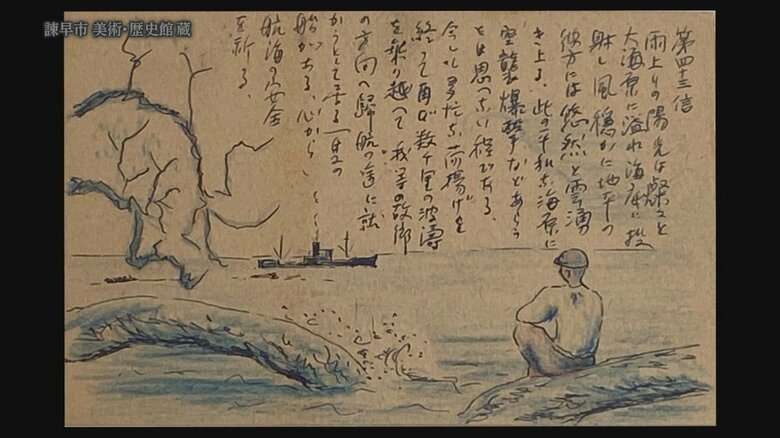 諫早市 美術・歴史館 蔵
第四十三信
雨上りの陽光は燦々と
大海原に溢れ海底に投
射し風穏かに地平の
彼方には悠然と雲湧
き上る、此の平和な海原に
空襲爆撃などあらう
とは思へない程である、
今しも多忙な荷揚げを
終って再び数千里の波濤
を乗り越へて我等の故郷
の方向へ帰航の途に就
かうとして居る一隻の
船がある、心から
航海の安全
を祈る